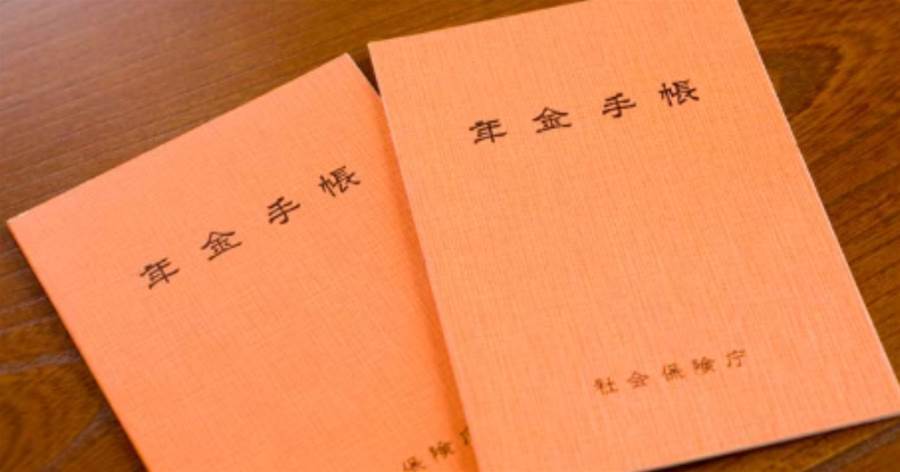 年金手帳
保険庁
年金手帳
社会保険庁